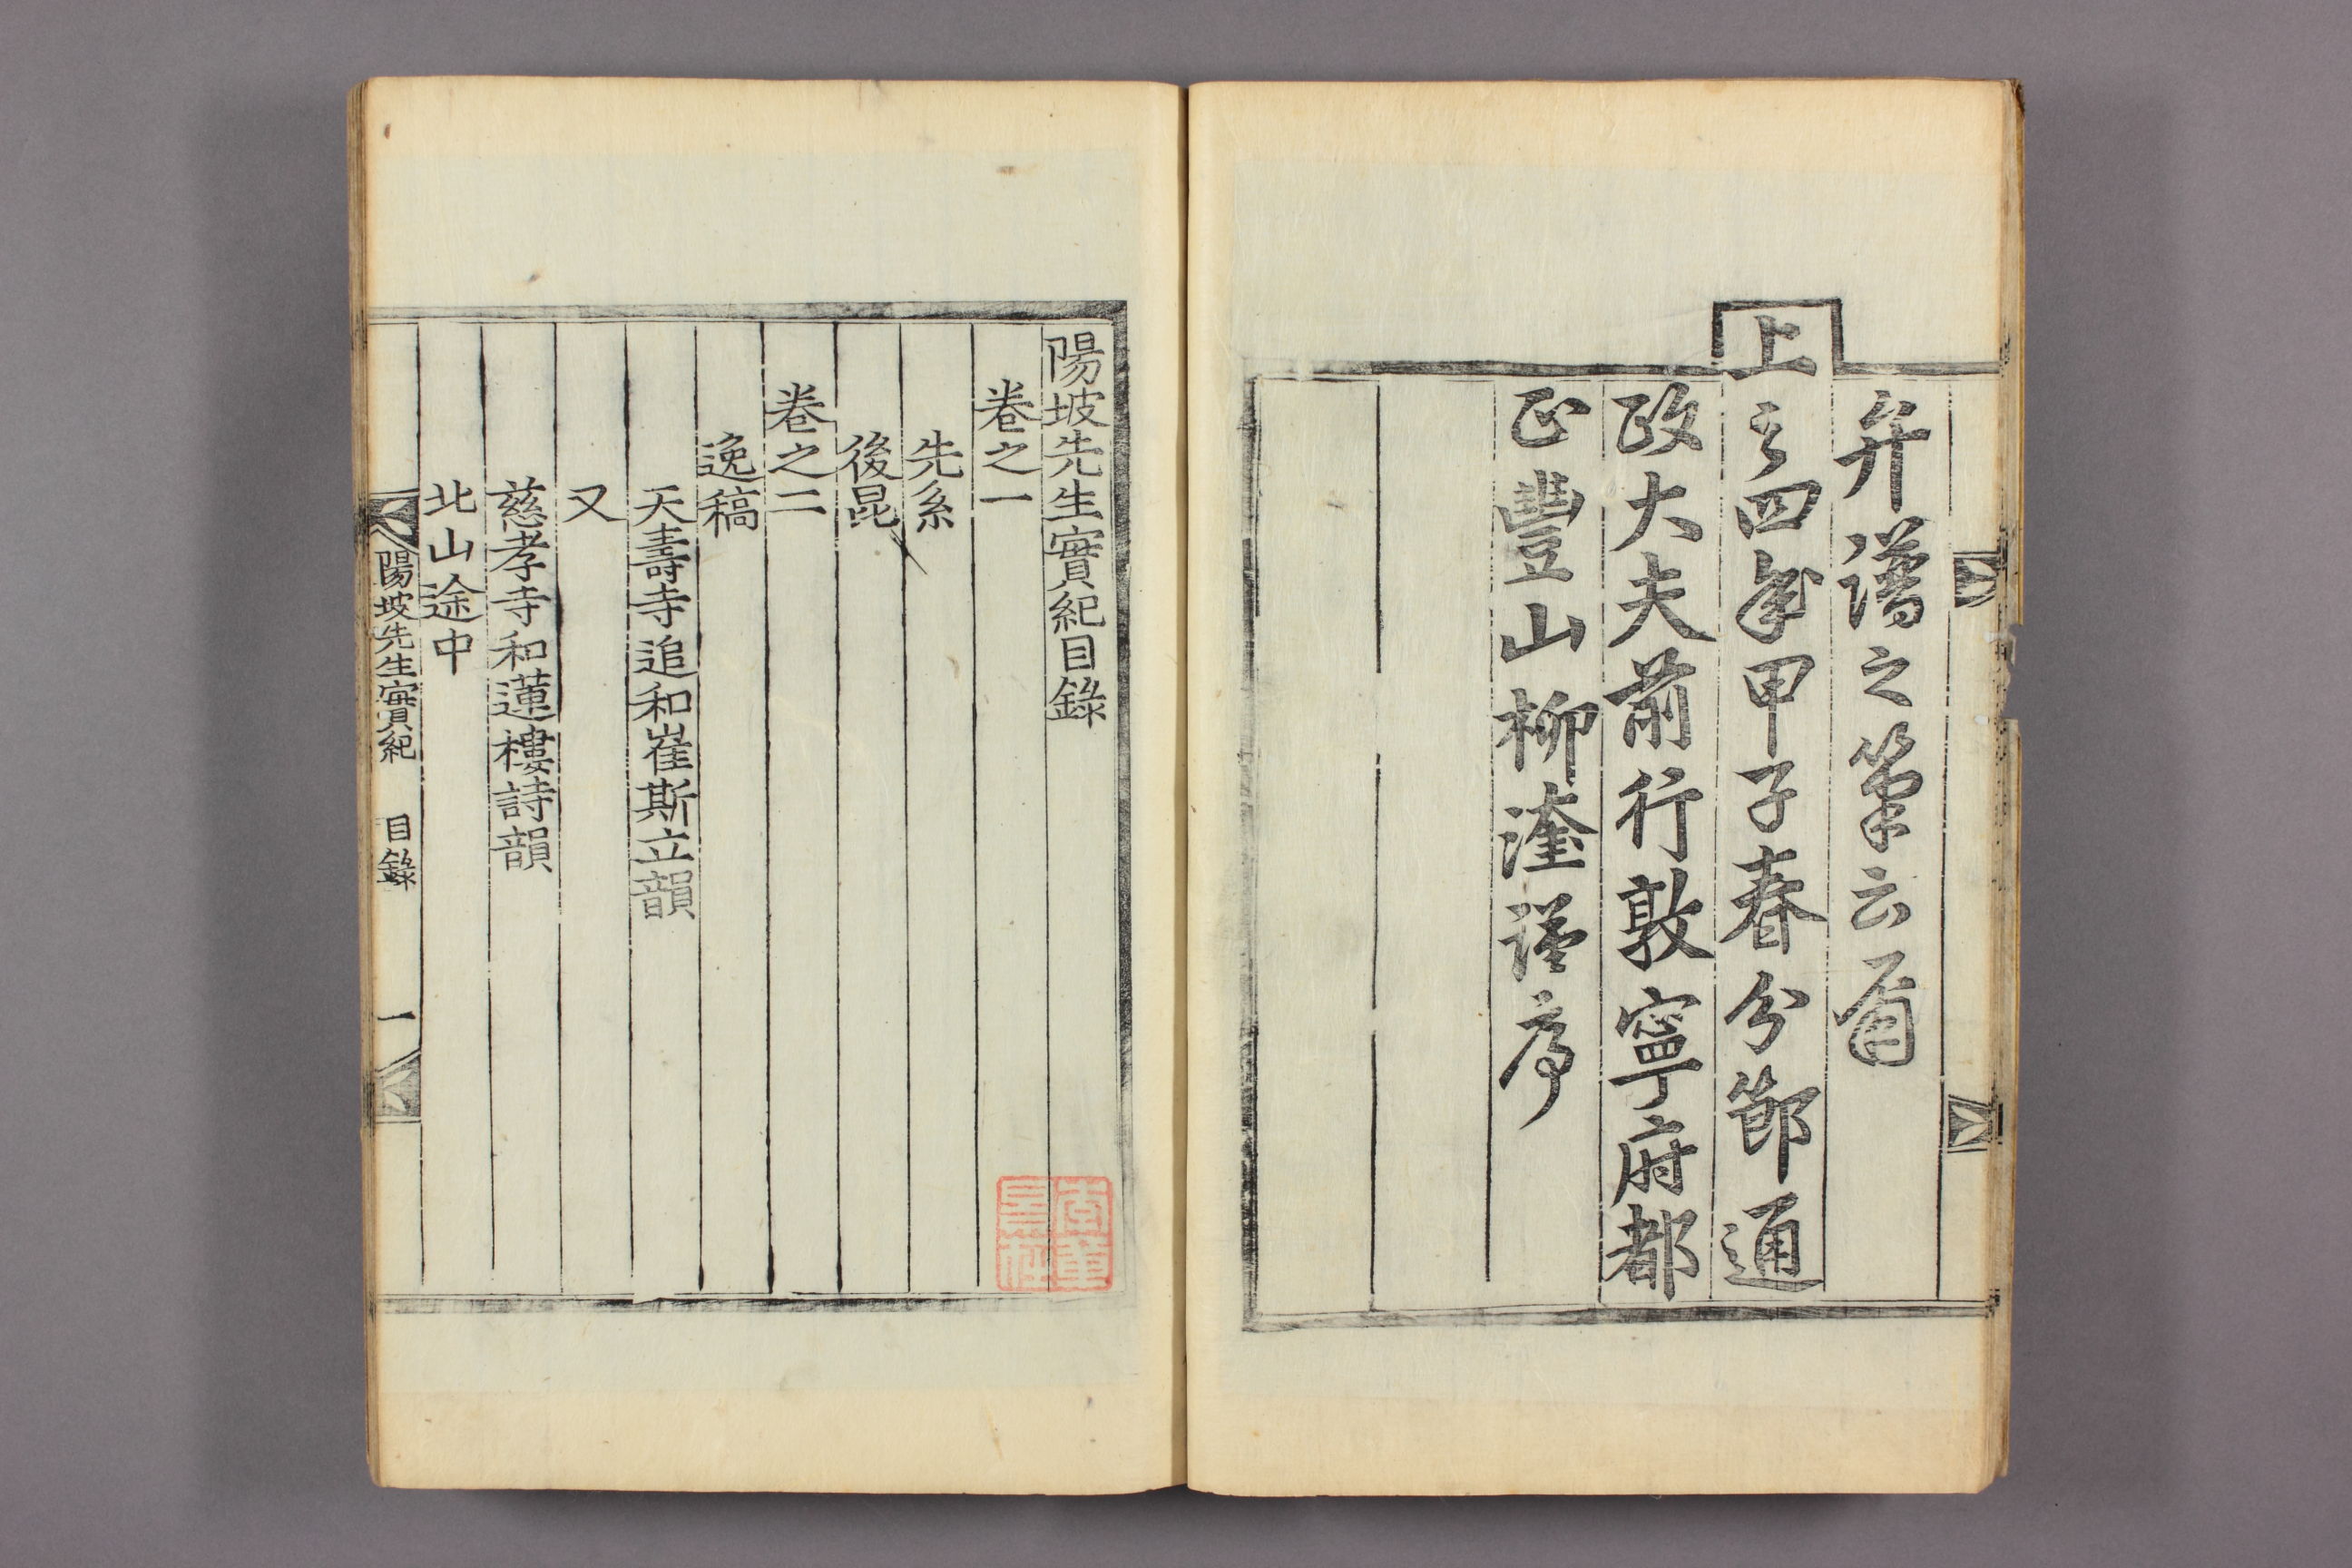 弁譜之筆云爾
上之四年甲子春分節通
政大夫前行敦寧府都
正豐山柳謹序
陽坡先生實紀目錄
卷之一
先系
後昆
卷之二
逸稿
天壽寺追和崔斯立韻
又
慈孝寺和蓮樓詩韻
北山途中
陽坡先生實紀 目錄 一